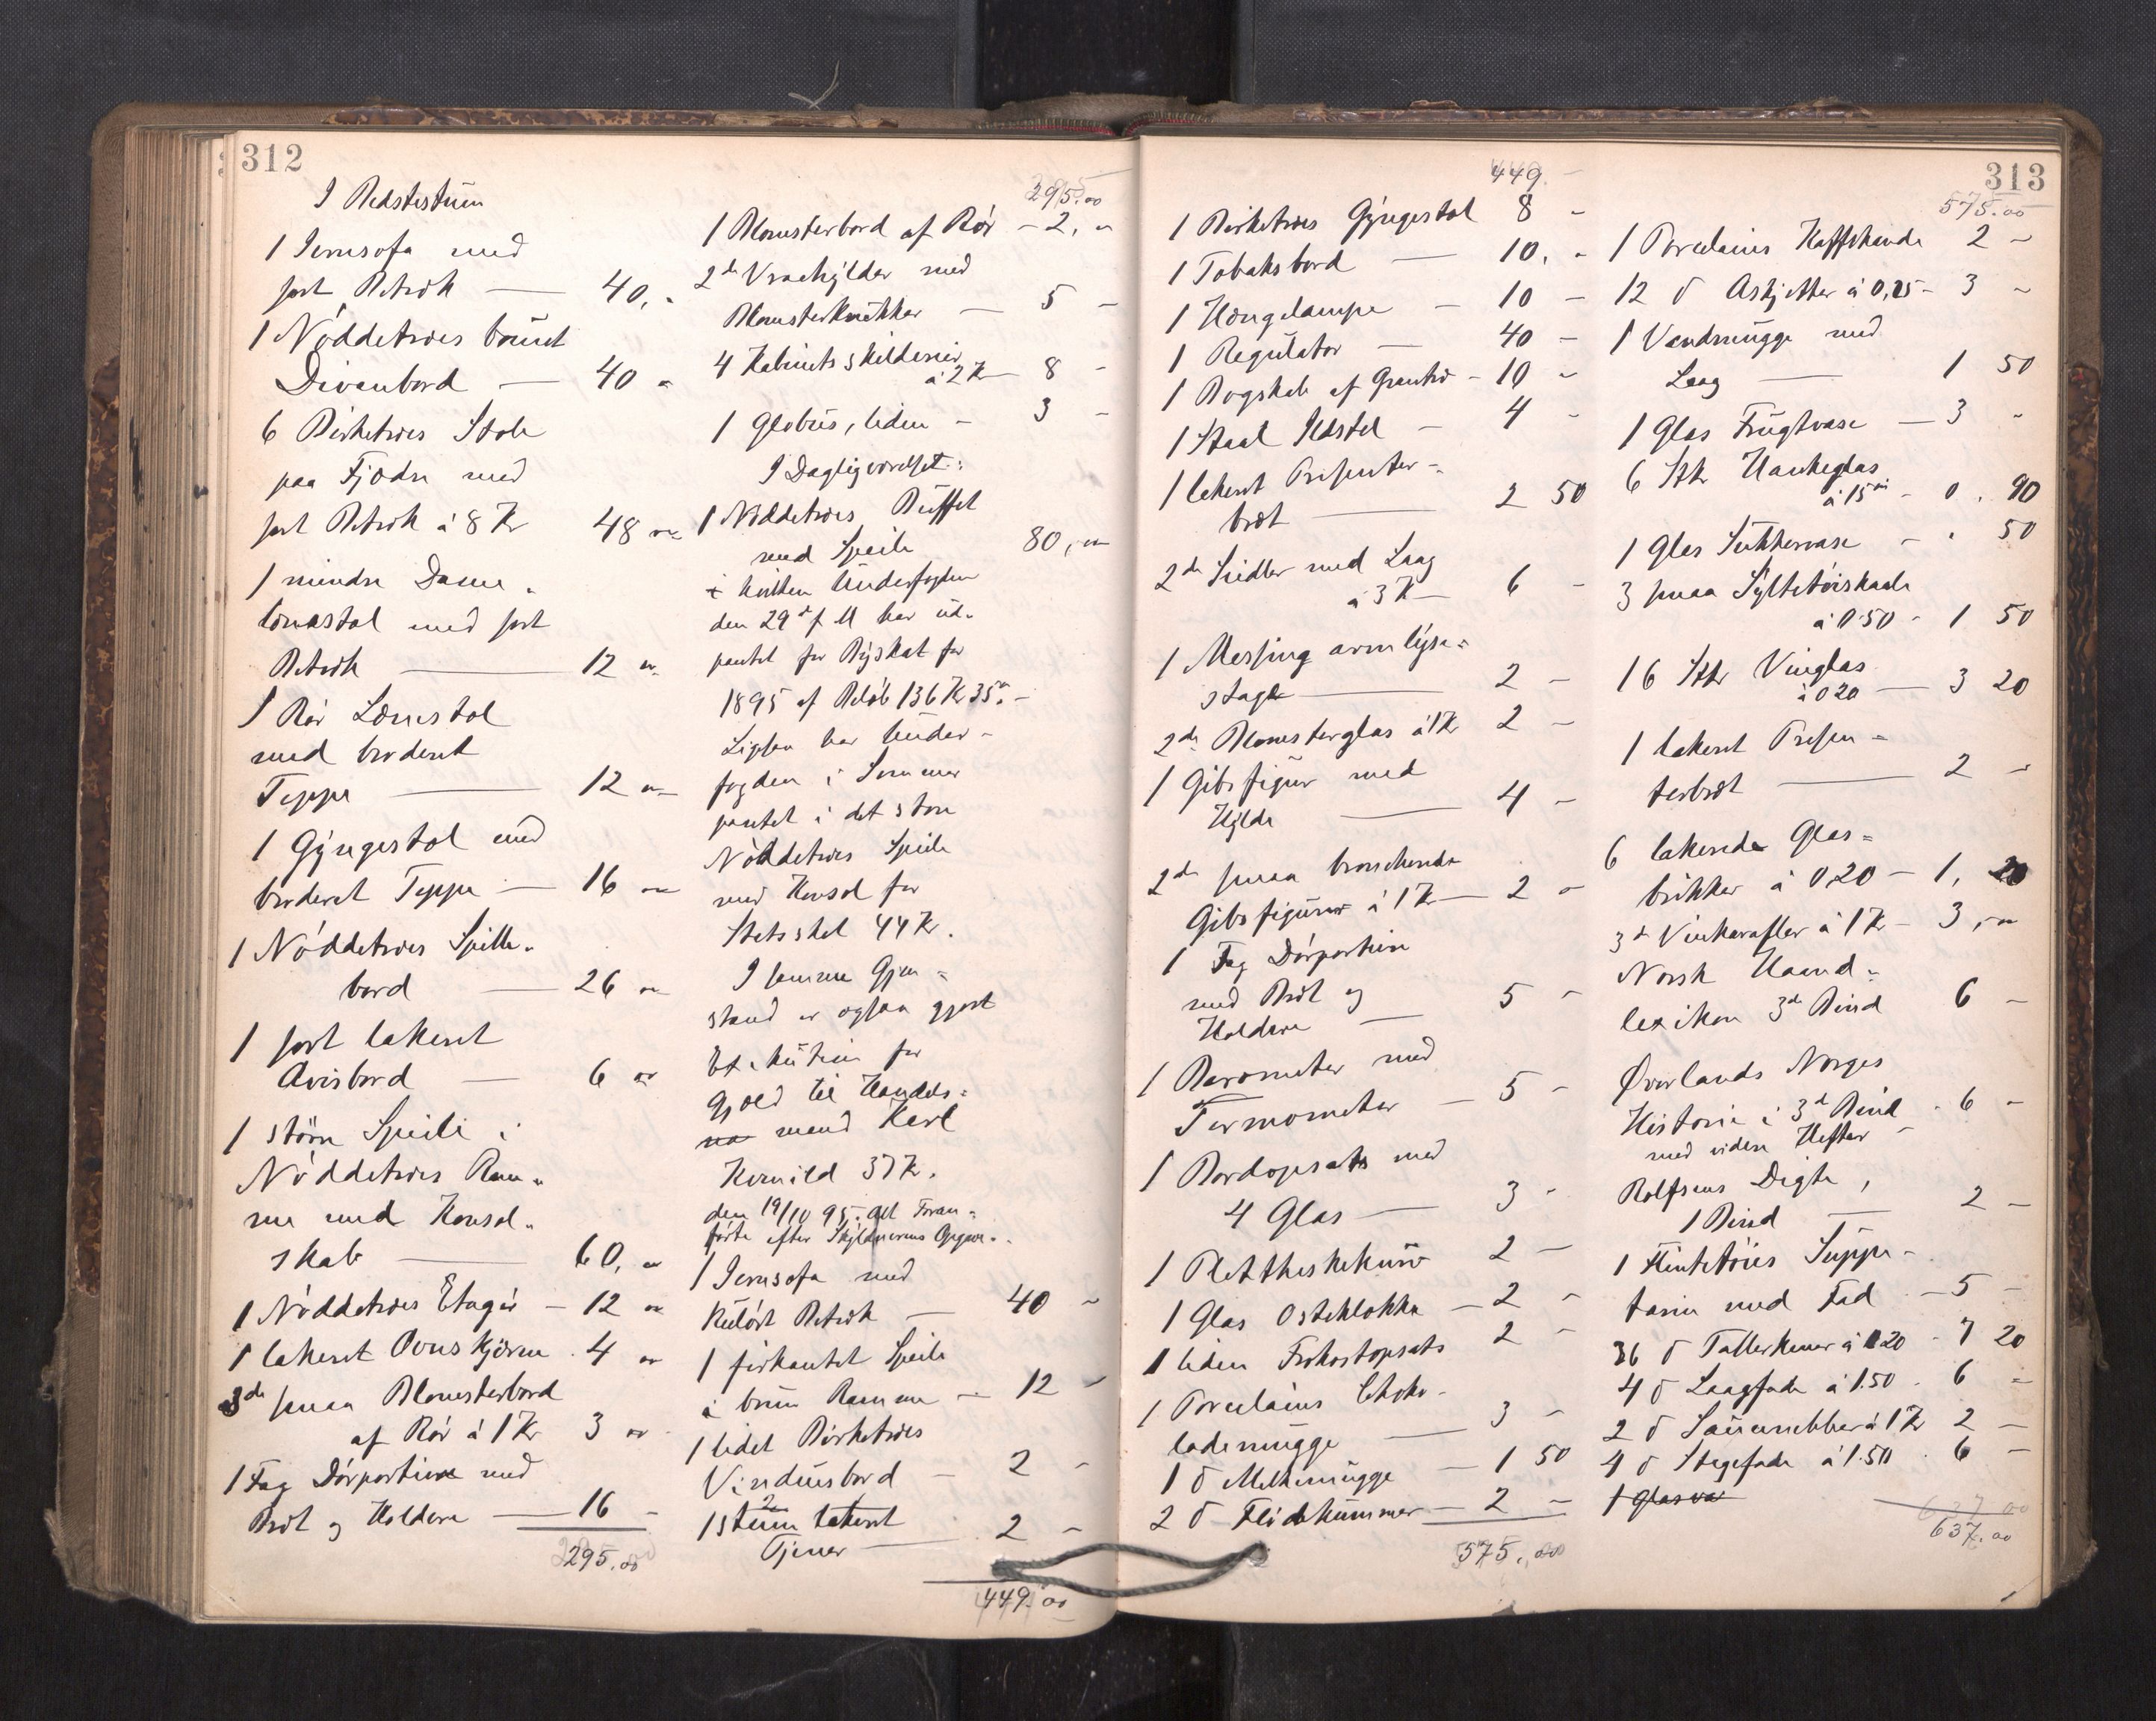 312
I Bedstestuen
1 Jernsofa med
sort Betræk — 40, "
1 Nøddetræes brunet
Divanbord — 40 "
6 Birketræes Stole
paa Fjædre med
sort Betræk à 8 Kr 48 "
1 mindre Dame
lænestol med sort
Betræk — 12 "
1 Rør Lænestol
med broderet
Teppe — 12 "
1 Gyngestol med
broderet Teppe — 16 "
1 Nøddetræes Spille-
bord — 26 "
1 sort lakeret
Avisbord — 6 "
1 større Speile i
Nøddetræes Ram-
me med Konsol-
skab — 60, "
1 Nøddetræes Etagér — 12 "
1 lakeret Ovnskjerm . 4 "
3de smaa Blomsterbord
af Rør à 1 Kr 3 "
1 Fag Dørportiere med
Bret og Holdere — 16 -
295.00
295.00
1 Blomsterbord af Rør - 2, "
2de Vraahylder med
Blomsterkrukker — 5 -
4 Kabinets skilderier
à 2 Kr — 8 -
1 Globus, liden - 3 -
I Dagligværelset:
1 Nøddetræes Buffet
med Speile 80, "
i hvilken Underfogden
den 29de f M har ud-
pantet for Byskat for
1895 af Beløb 136 Kr 35 ø. -
Ligesaa har Under-
fogden i Sommer
pantet i det store
Nøddetræes Speile
med Konsol for
Statsskat 44 Kr.
I samme Gjen-
stand er ogsaa gjort
Exekution for
Gjæld til Handels-
mand Karl
Kornild 37 Kr.
den 19/10 95. Alt Foran-
førte efter Skyldnerens Opgave.
1 Jernsofa med
Kulørt Betræk — 40 -
1 firkantet Speile
i brun Ramme — 12 -
1 lidet Birketræes
Vinduesbord - 2 -
1 Stum lakeret
Tjener — 2 -
449.00
313
449. -
1 Birketræes Gyngestol 8 -
1 Tobaksbord — 10, -
1 Hængelampe - 10 -
1 Regulator — 40 -
1 Bogskab af Grantræ - 10 -
1 Staal Ildstel - 4 -
1 lakeret Presenter-
bret — 2 50
2de Seidler med Laag
à 3 Kr — 6 -
1 Messing armlyse-
stage — 2 -
2de Blomsterglas à 1 Kr 2 -
1 Gibsfigur med
Hylde — 4 -
2de smaa broncherede
Gibsfigurer à 1 Kr — 2 -
1 Fag Dørportiere
med Bret og
Holdere — 5 -
1 Barometer med
Termometer — 5 -
1 Bordopsats med
4 Glas — 3 -
1 Plettheskekurv 2 -
1 Glas Osteklokke — 2 -
1 liden Frokostopsats 2 -
1 Porcelains Choko-
lademugge — 3 -
1 do Melkemugge — 1 50
2 do Flødekummer — 2 -
575.00
575.00
1 Porcelains Kaffekande 2 -
12 do Askjetter à 0,25 - 3 -
1 Vandmugge med
Laag — 1 50
1 Glas Frugtvase — 3 -
6 Stkr Hankeglas
à 15 øre - 0 . 90
1 Glas Sukkervase - . 50
3 smaa Syltetøiskaale
à 0.50 - 1 50
16 Stkr Vinglas
à 0 20 — 3 20
1 lakeret Presen-
terbret — 2 -
6 lakerede Glas-
brikker à 0,20 - 1, 20
3de Vinkarafler à 1 Kr - 3, "
Norsk Haand-
lexikon 3de Bind 6 -
Øverlands Norges
Historie i 3de Bind . 6 -
med videre Hefter
Rolfsens Digte,
1 Bind — 2 -
1 Stentøies Suppe-
terin med Fad - 5 -
36 do Tallerkener à 0.20 - 7 20
4 do Laagfade à 1.50 . 6 -
2 do Sausenebber à 1 Kr 2 -
4 do Stegefade à 1.50 . 6 -
1 Glasva
637 00
637.00